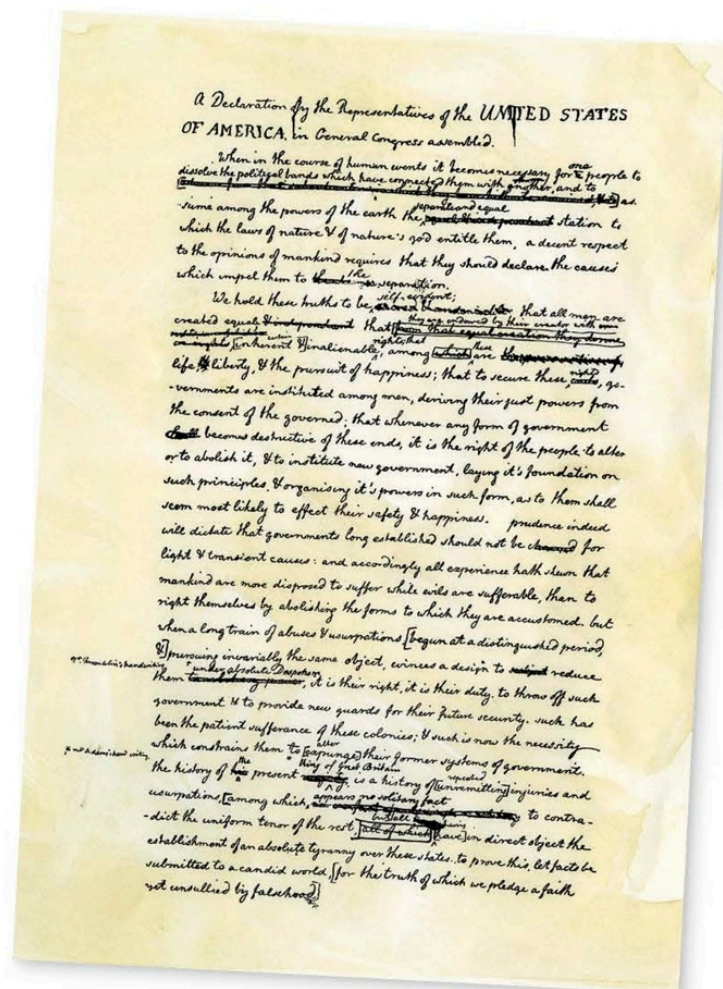 A Declaration by the Representatives of the UNITED STATES
OF AMERICA, in General Congress assembled.
When in the course of human events it becomes necessary for one people to
dissolve the political bands which have connected them with another, and to
as-
separate and equal
-sume among the powers of the earth the station to
which the laws of nature & of nature's god entitle them, a decent respect
to the opinions of mankind requires that they should declare the causes
which impel them to the separation.
self-evident;
We hold these truths to be that all men are
they are endowed by their creator with
created equal & independant that from that equal creation they derive
certain rights; that these
[inherent &] inalienable, among which are
life & liberty, & the pursuit of happiness; that to secure these rights, go-
-vernments are instituted among men, deriving their just powers from
the consent of the governed; that whenever any form of government
shall becomes destructive of these ends, it is the right of the people to alter
or to abolish it, & to institute new government, laying it's foundation on
such principles, & organising it's powers in such form, as to them shall
seem most likely to effect their safety & happiness. prudence indeed
will dictate that governments long established should not be changed for
light & transient causes: and accordingly all experience hath shewn that
mankind are more disposed to suffer while evils are sufferable, than to
right themselves by abolishing the forms to which they are accustomed. but
when a long train of abuses & usurpations [begun at a distinguished period,
&] pursuing invariably the same object, evinces a design to reduce
* under absolute Despotism
them it is their right, it is their duty, to throw off such
government & to provide new guards for their future security. such has
been the patient sufferance of these colonies; & such is now the necessity
alter
which constrains them to [expunge] their former systems of government.
the king of Great Britain repeated
the history of his present is a history of [unremitting] injuries and
appears no solitary fact
usurpations, [among which, to contra-
but all
-dict the uniform tenor of the rest, all of which [have] in direct object the
establishment of an absolute tyranny over these states. to prove this, let facts be
submitted to a candid world, [for the truth of which we pledge a faith
yet unsullied by falsehood]
* Dr. Franklin's handwriting
* Mr. Adams' hand writing